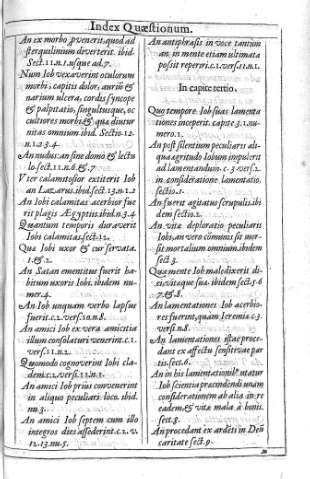 Index Quæstionum.
An ex morbo pvenerit, quod ad
sterquilinium diverterit. ibid.
Sect. 11. n. 1. usque ad. 7.
Num Iob vexaverint oculorum
morbi, capitis dolor, aurium &
narium ulcera, cordis syncope
& palpitatio, singultusque, oc
cultores morbi & qua diutur
nitas omnium ibid. Sectio. 12.
n. 1. 2. 3. 4
An nudus: an sine domo & lectu
lo sect. 12. n. 6. & .7
Vter calamitosior extiterit Iob
an Lazarus. ibid. sect. 13. n. 1. 2
An Iobi calamitas acerbior fue
rit plagis Ægyptiis ibid. n. 3. 4
Quantum temporis duraverit
Iobi calamitas. sect. 12.
Qua Iobi uxor & cur servata.
1. & 2.
An Satan ementitus fuerit ha-
bitum uxoris Iobi. ibidem nu-
mer. 4.
An Iob unquam verbo lapsus
fuerit. c. 2. vers. 10. n. 8.
An amici Iob ex vera amicitia
illum consolaturi venerint. c. 2.
vers. 11. n. 2.
Quomodo cognoverint Iobi cla-
dem. c. 2. vers. 11. n. 1.
An amici Iob priùs convenerint
in aliquo peculiari loco. ibid.
nu. 3.
An amici Iob septem cum illo
integros dies assederint. c. 2. v.
12. 13. nu. 5.
An antiphrasis in voce tantum
an in mente etiam ultimata
possit reperiri. c. 2. vers. 11. n. 1.
In capite tertio.
Quo tempore Iob suas lamenta
tiones inceperit. capite 3. 1. nu-
mero. 1.
An post silentium peculiaris ali-
qua agritudo Iobum impulerit
ad lamentandum. c. 3 vers. 2.
in consideratione lamentatio.
sectio. 1.
An fuerit agitatus scrupulis. ibi
dem sectio. 2.
An vita deploratio peculiaris
Iobi, an vero cõmunis sit mor-
sit mortalium omnium. ibidem
sect. 3.
Qua mente Iob maledixerit di-
ei vitæque sua. ibidem sect. 5. 6
7. & 8.
An lamentationes Iob acerbio-
res fuerint, quàm Ieremia c. 3
vers. n. 8.
An lamentationes istæ proce-
dant ex affectu sensitivæ par
tis. sect. 6.
An in his lamentationib⁹ utatur
Iob scientia pracindendi unam
considerationem ab alia in re
eadem, & vita mala à bonis.
sect. 8.
An procedant ex ardẽti in Deũ
caritate sect. 9.